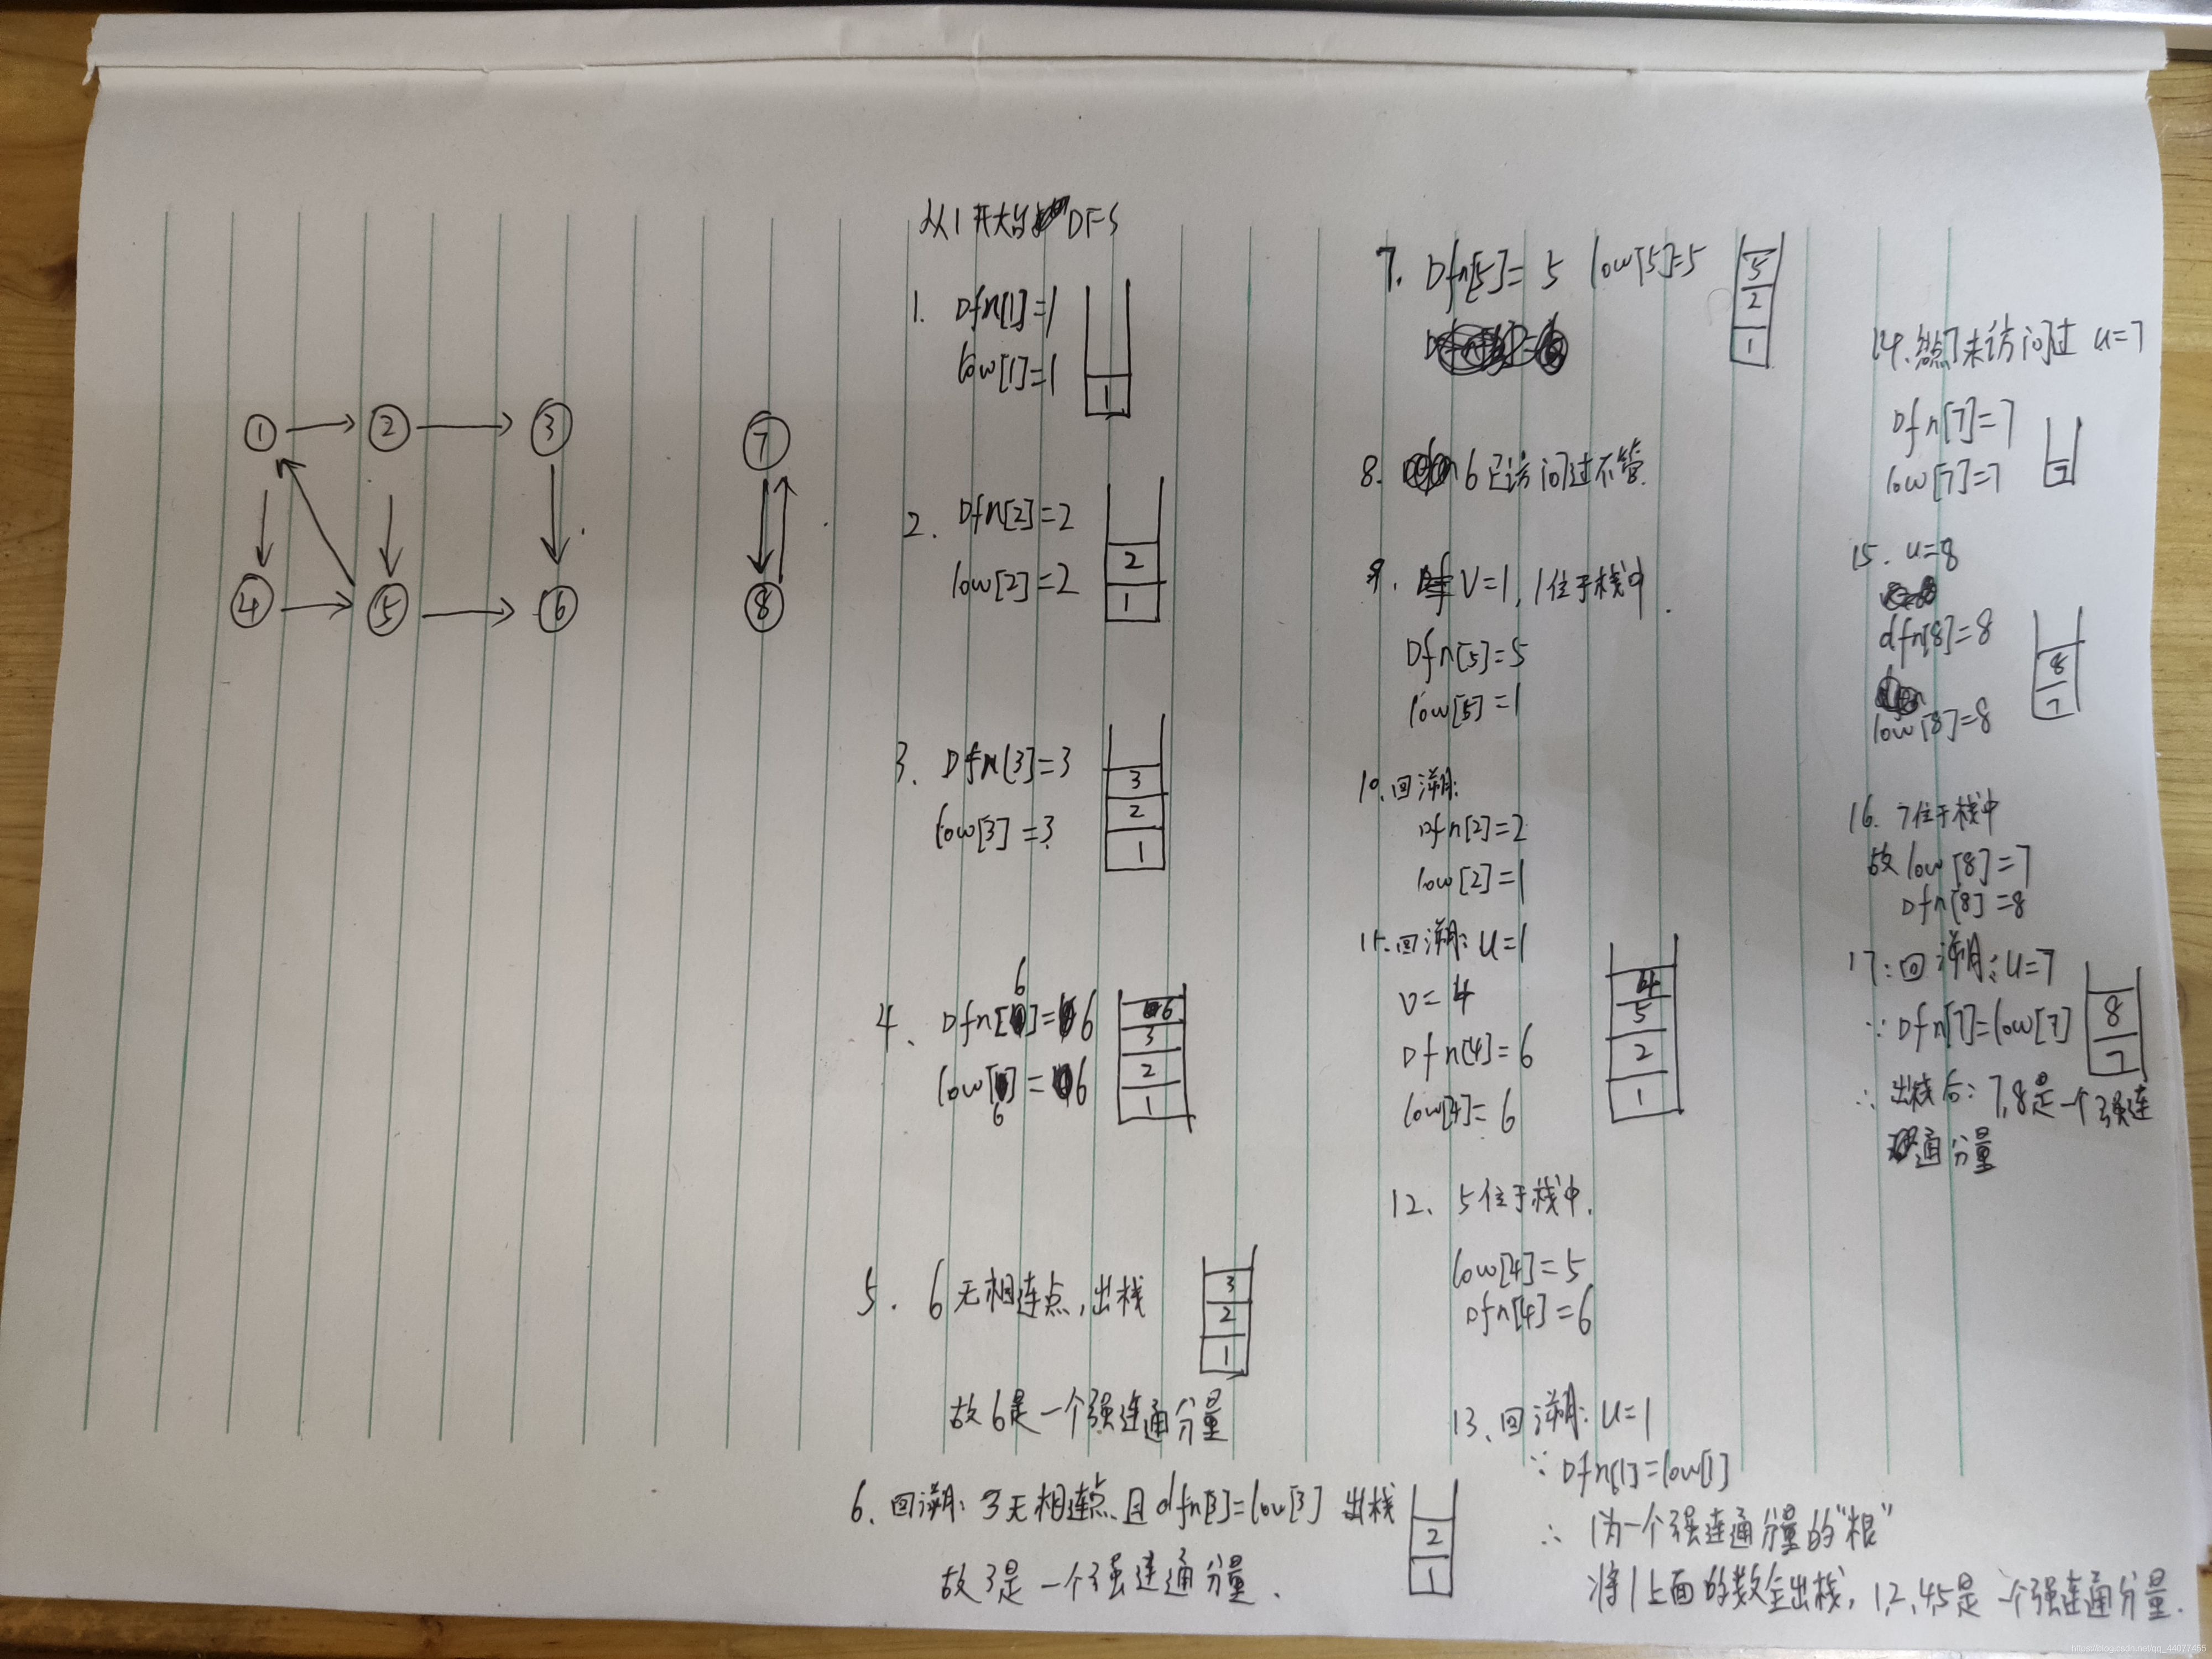 ① ② ③ ⑦
④ ⑤ ⑥ ⑧
从1开始DFS
1. Dfn[1]=1
low[1]=1
1
2. Dfn[2]=2
low[2]=2
2
1
3. Dfn[3]=3
low[3]=3
3
2
1
4、Dfn[6]=6
low[6]=6
6
3
2
1
5. 6无相连点,出栈
3
2
1
故6是一个强连通分量
6、回溯:3无相连点且dfn[3]=low[3] 出栈
2
1
故3是一个强连通分量.
7. Dfn[5]=5 low[5]=5
5
2
1
8. 6已访问过不管.
9. V=1,1位于栈中.
Dfn[5]=5
low[5]=1
10、回溯:
Dfn[2]=2
low[2]=1
11.回溯:u=1
v=4
Dfn[4]=6
low[4]=6
4
5
2
1
12、5位于栈中.
low[4]=5
Dfn[4]=6
13、回溯:u=1
∵Dfn[1]=low[1]
∴1为一个强连通分量的“根”
将1上面的数全出栈,1,2,4,5是一个强连通分量.
14.点7未访问过 u=7
Dfn[7]=7
low[7]=7
7
15. u=8
dfn[8]=8
low[8]=8
8
7
16. 7位于栈中
故low[8]=7
Dfn[8]=8
17:回溯:u=7
∵Dfn[7]=low[7]
8
7
∴出栈后:7,8是一个强连
通分量
https://blog.csdn.net/qq_44077455